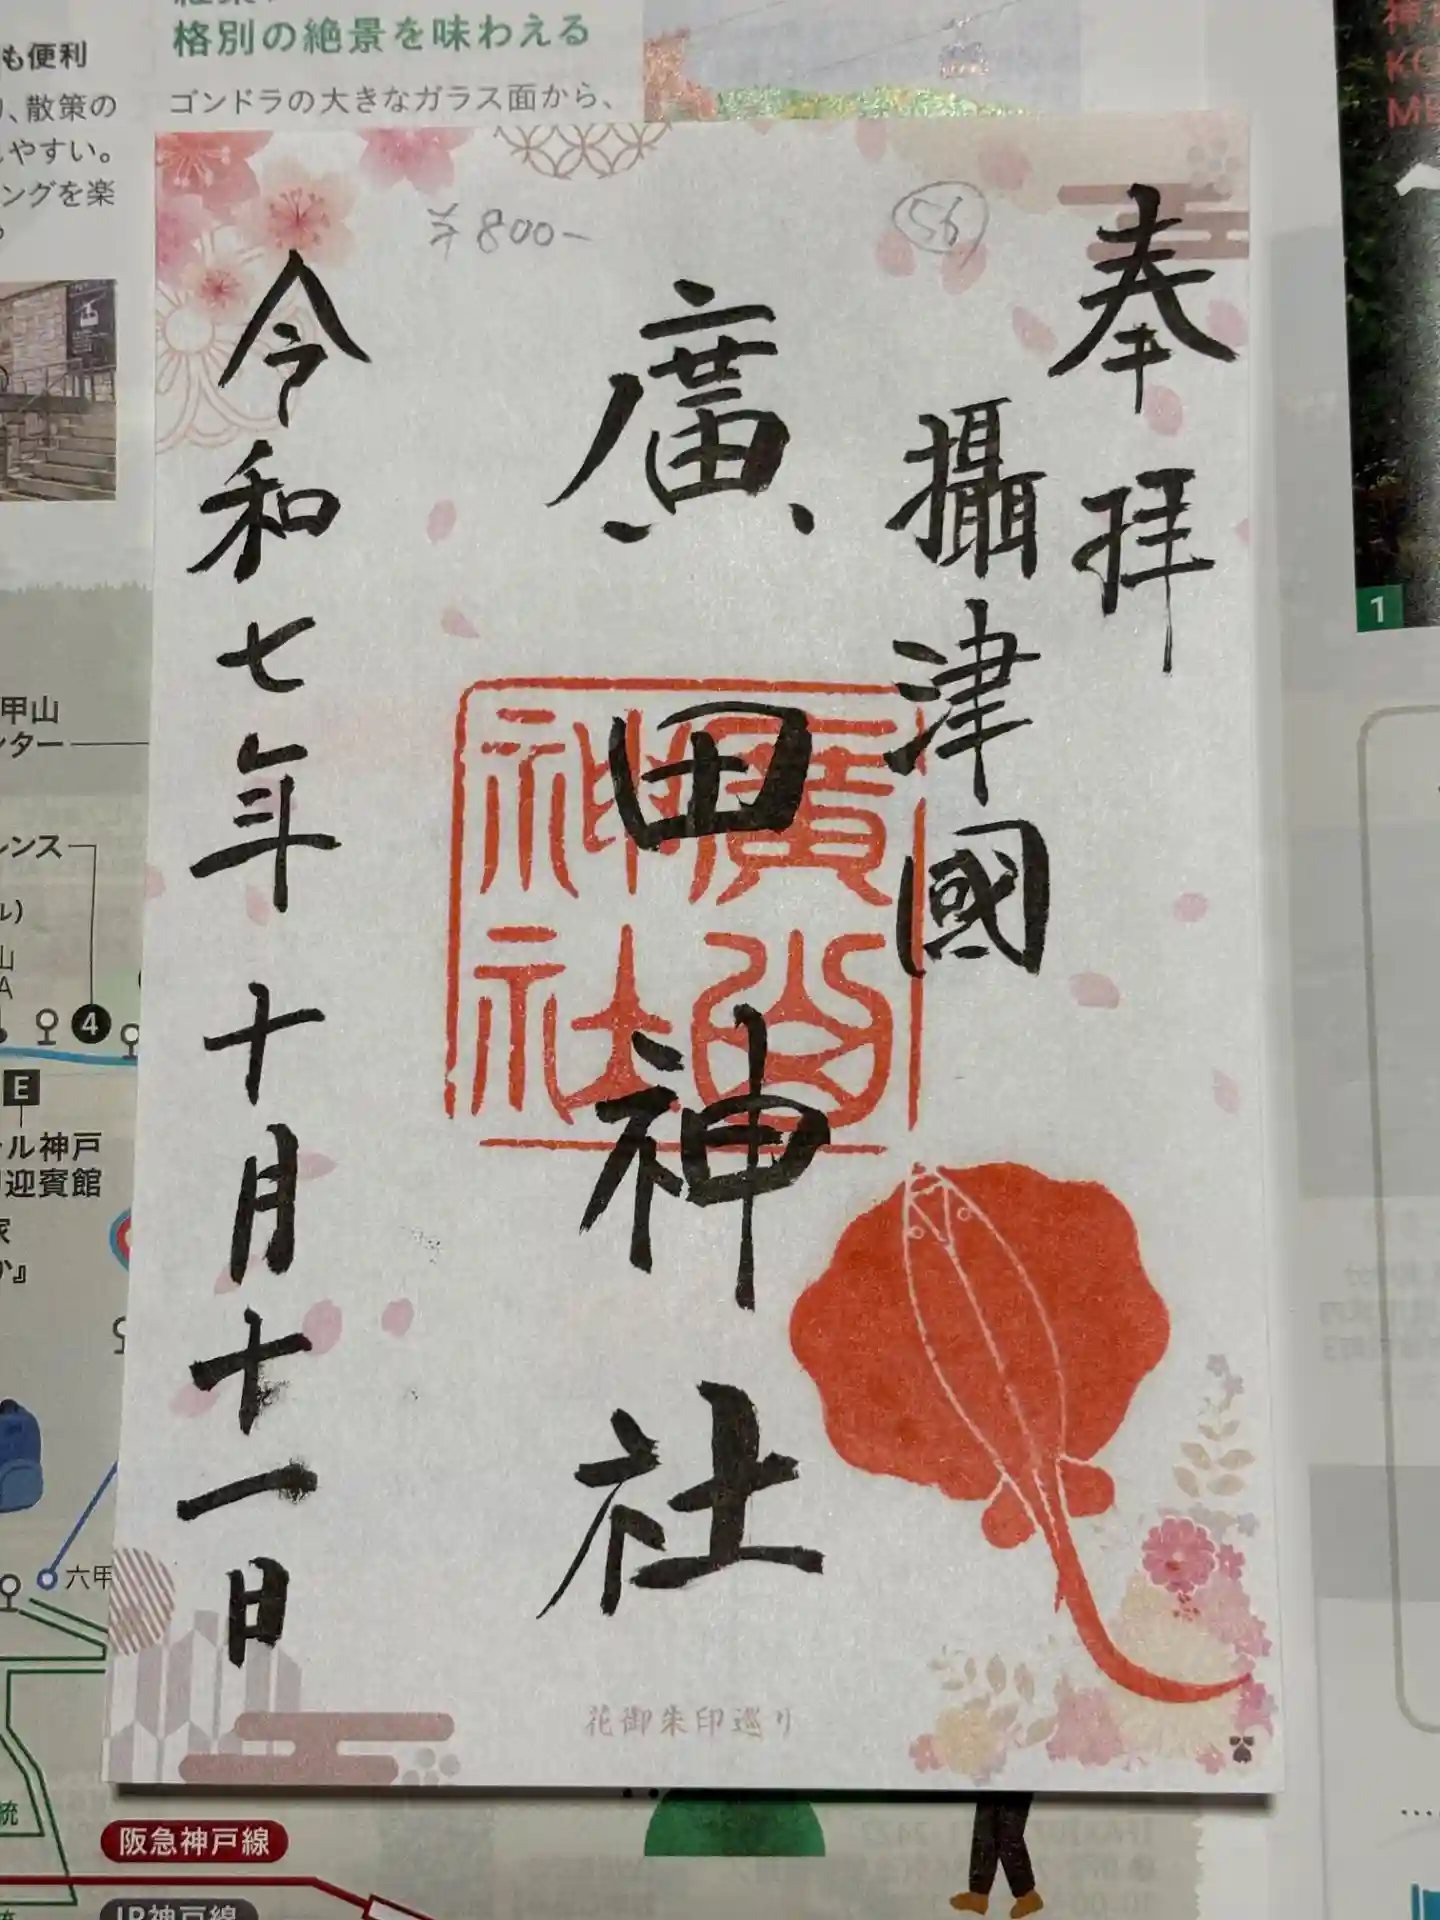 奉拝
攝津國
廣田神社
令和七年十月十一日
¥800-
56
廣田
神社
花御朱印巡り
格別の絶景を味わえる
ゴンドラの大きなガラス面から、
も便利
り、散策の
しやすい。
ングを楽
甲山
ンター
レンス
ル)
山
A
4
E
ール神戸
迎賓館
家
か』
六甲
統
阪急神戸線
統
JR神戸線
神
KO
ME
1